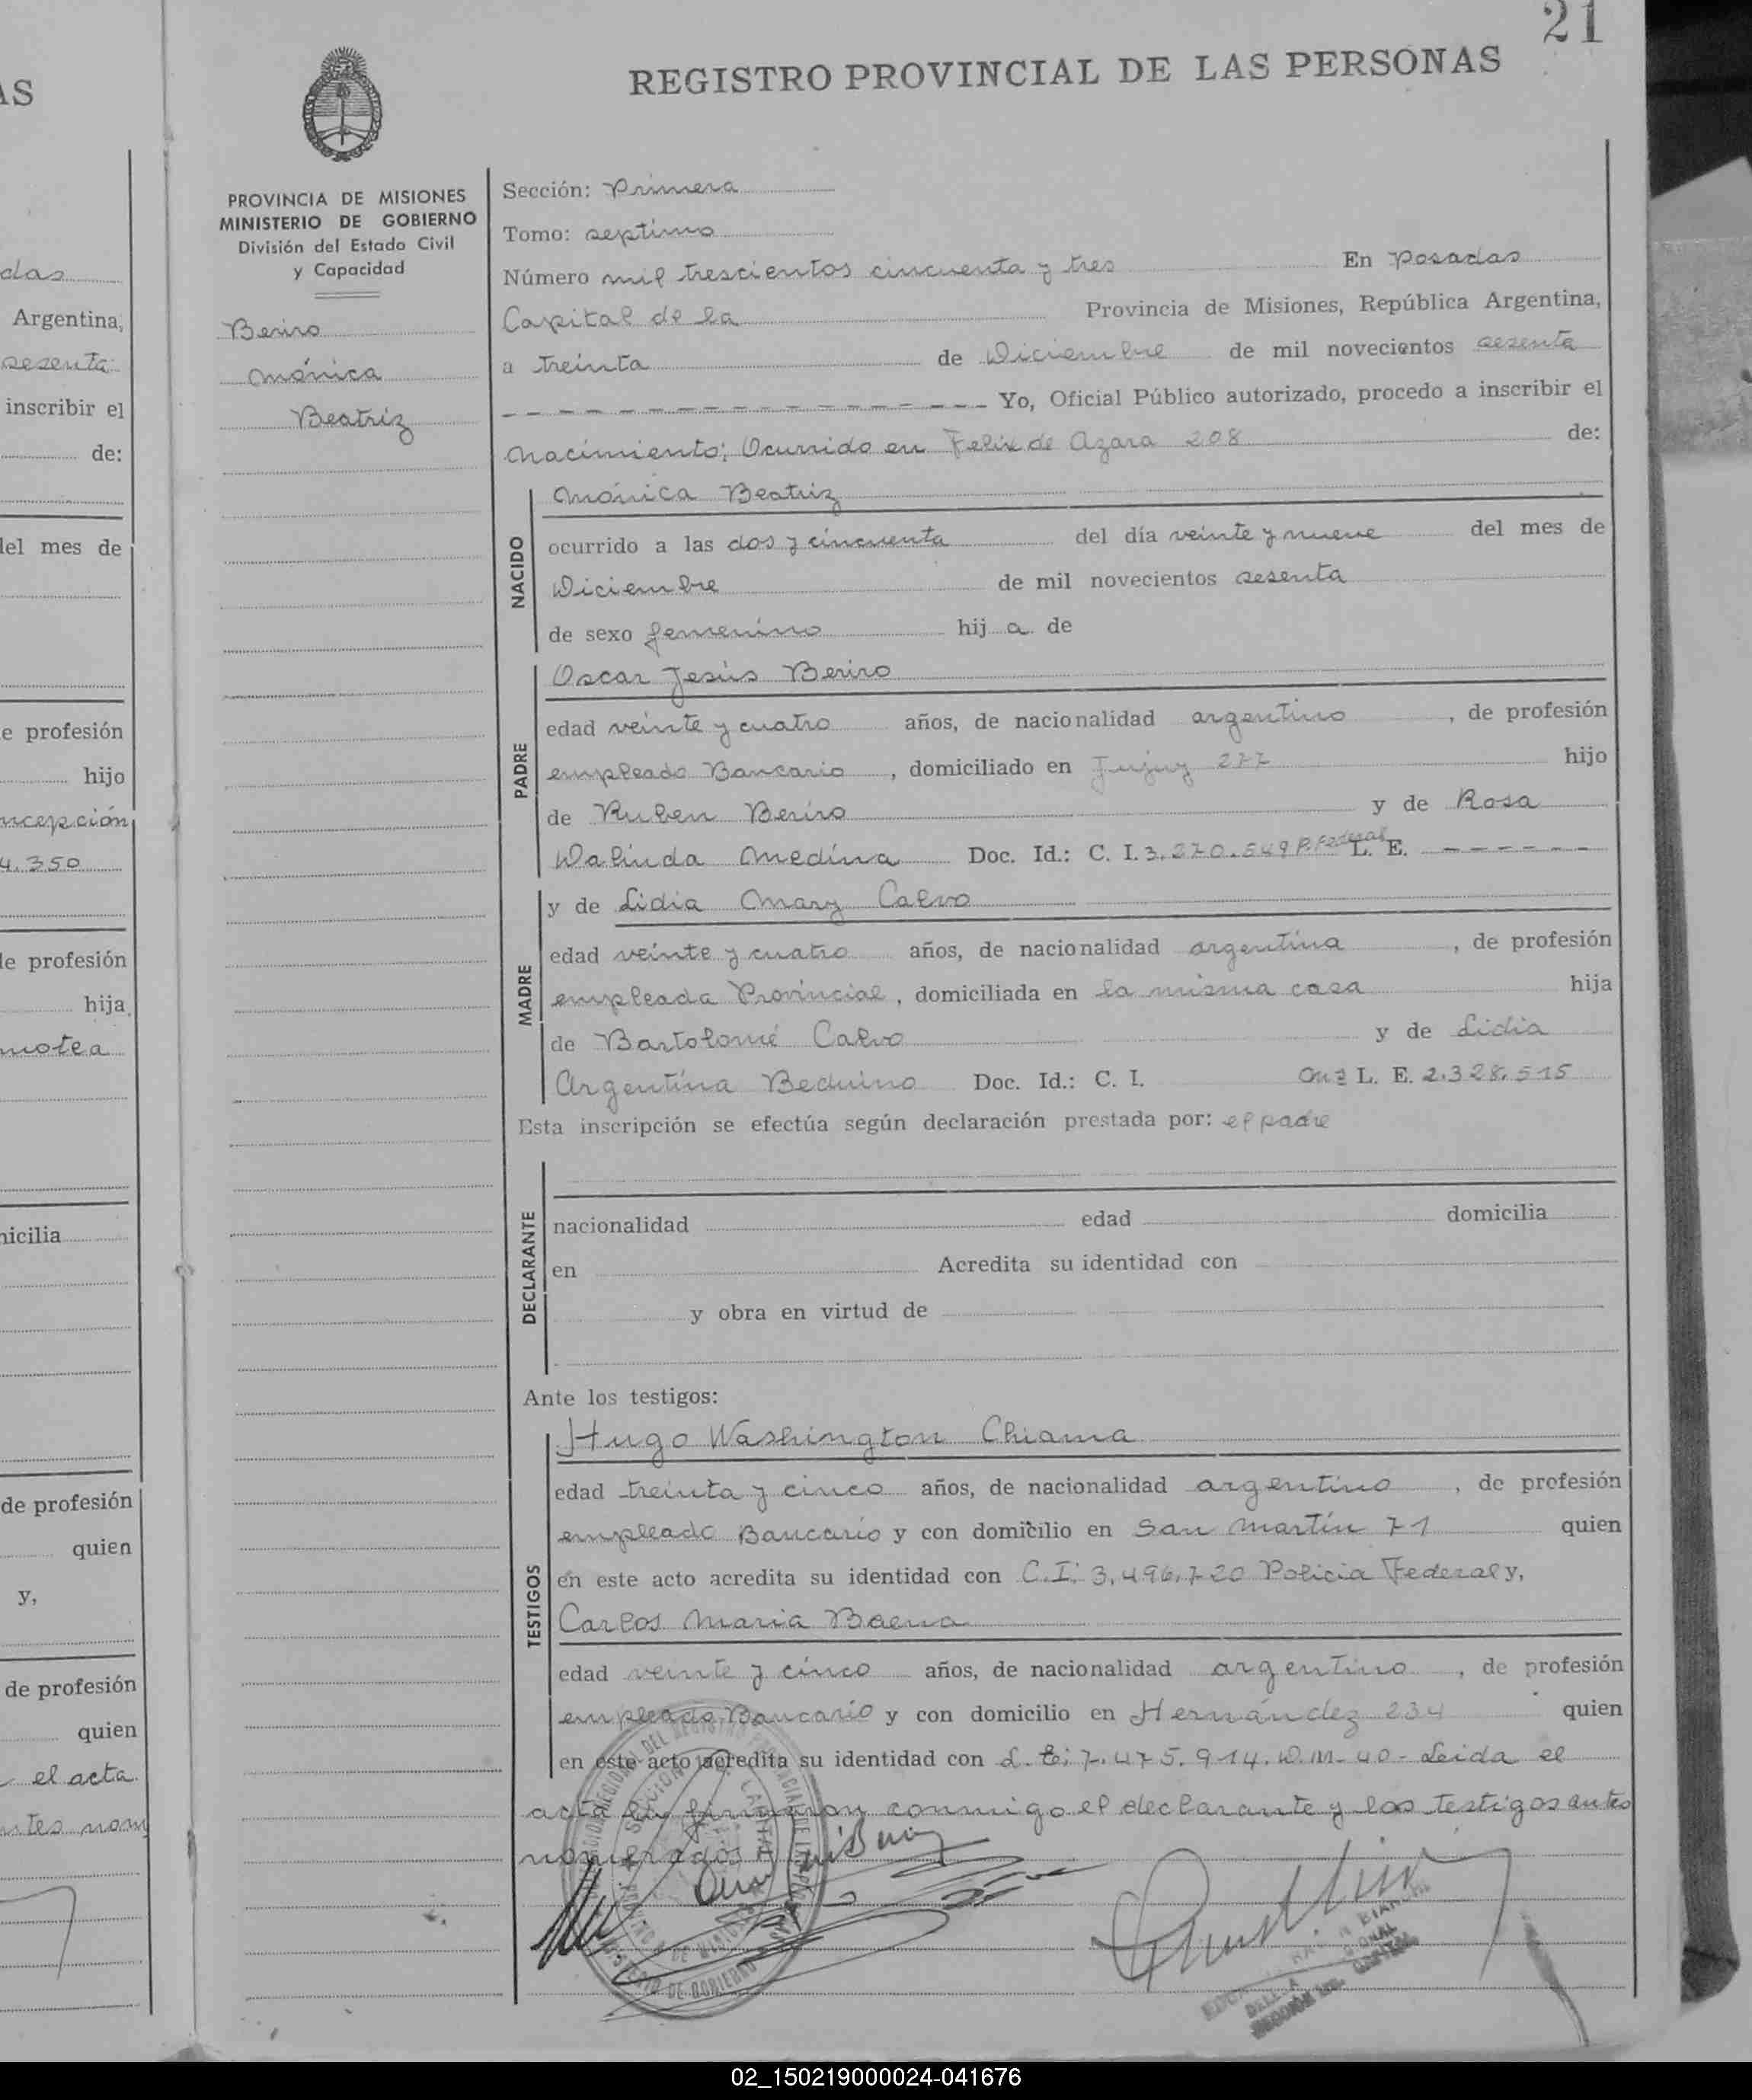 21
REGISTRO PROVINCIAL DE LAS PERSONAS
PROVINCIA DE MISIONES
MINISTERIO DE GOBIERNO
División del Estado Civil
y Capacidad
Beriro
Mónica
Beatriz
Sección: Primera
Tomo: septimo
Número mil trescientos cincuenta y tres En Posadas
Capital de la Provincia de Misiones, República Argentina,
a treinta de Diciembre de mil novecientos sesenta
Yo, Oficial Público autorizado, procedo a inscribir el
nacimiento; Ocurrido en Felix de Azara 208 de:
NACIDO
Mónica Beatriz
ocurrido a las dos y cincuenta del día veinte y nueve del mes de
Diciembre de mil novecientos sesenta
de sexo femenino hij a de
PADRE
Oscar Jesús Beriro
edad veinte y cuatro años, de nacionalidad argentino, de profesión
empleado Bancario, domiciliado en Jujuy 277 hijo
de Ruben Beriro y de Rosa
Dalinda Medina Doc. Id.: C. I. 3.270.549 P. Federal L. E. - - - - - -
MADRE
y de Lidia Mary Calvo
edad veinte y cuatro años, de nacionalidad argentina, de profesión
empleada Provincial, domiciliada en la misma casa hija
de Bartolomé Calvo y de Lidia
Argentina Beduino Doc. Id.: C. I. L. E. 2.328.515
Esta inscripción se efectúa según declaración prestada por: el padre
DECLARANTE
nacionalidad edad domicilia
en Acredita su identidad con
y obra en virtud de
Ante los testigos:
TESTIGOS
Hugo Washington Chiama
edad treinta y cinco años, de nacionalidad argentino, de profesión
empleado Bancario y con domicilio en San Martín 71 quien
en este acto acredita su identidad con C.I. 3,496,720 Policia Federal y,
Carlos Maria Baena
edad veinte y cinco años, de nacionalidad argentino, de profesión
empleado Bancario y con domicilio en Hernández 234 quien
en este acto acredita su identidad con L. E: 7.475.914. D.M-40- Leida el
acta la firmaron conmigo el declarante y los testigos antes
nombrados
AS
das
Argentina,
sesenta
inscribir el
de:
del mes de
de profesión
hijo
ncepción
4.350
de profesión
hija
motea
micilia
de profesión
quien
y,
de profesión
quien
el acta
ntes nom
02_150219000024-041676